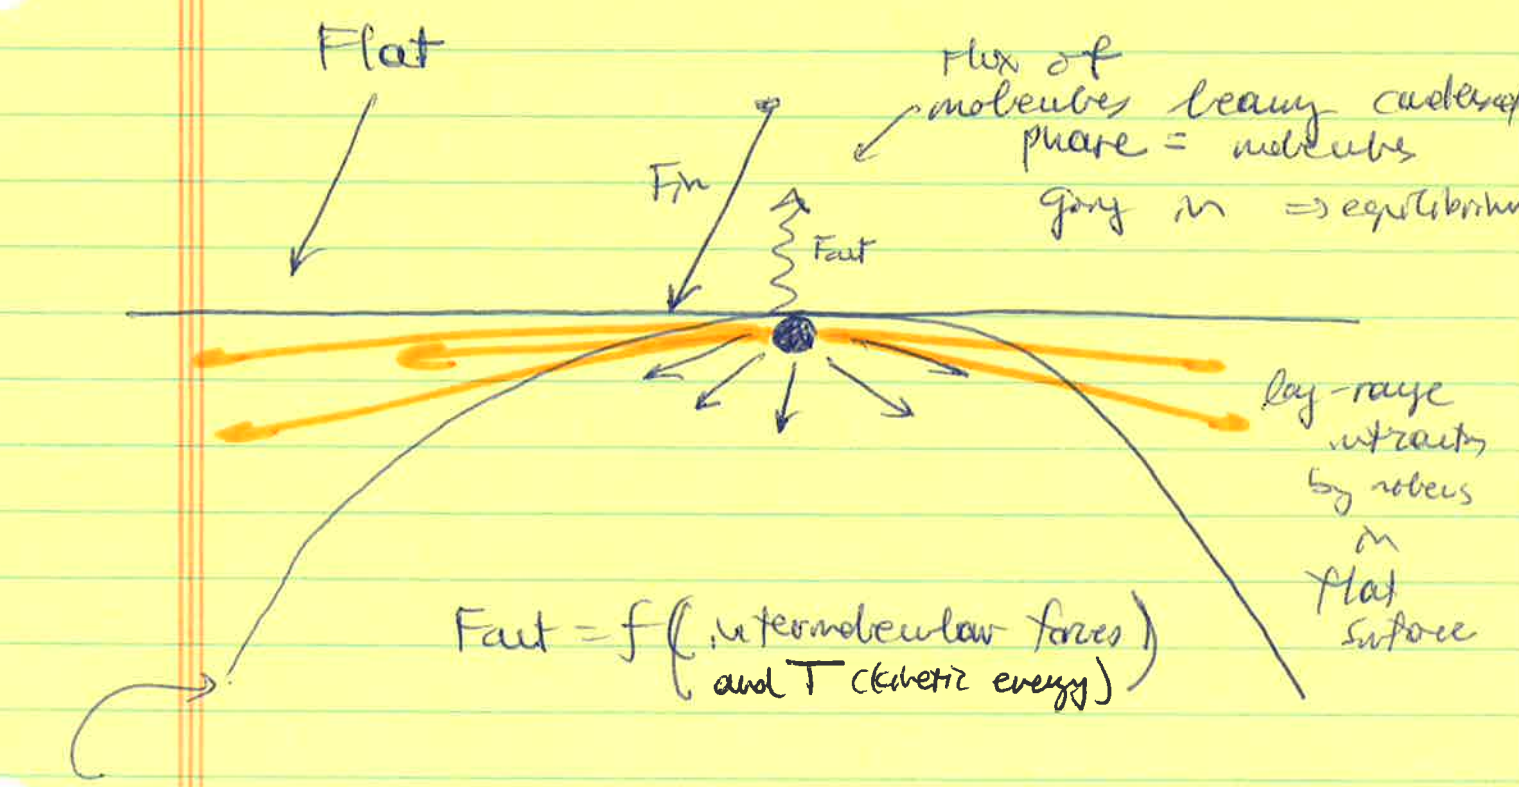 Flat
Flux of
molecules leaving condensed
phase = molecules
going in => equilibrium
Fin
Fout
long-range
interactions
by molecules
in
flat
surface
Fout = f(intermolecular forces
and T (kinetic energy))